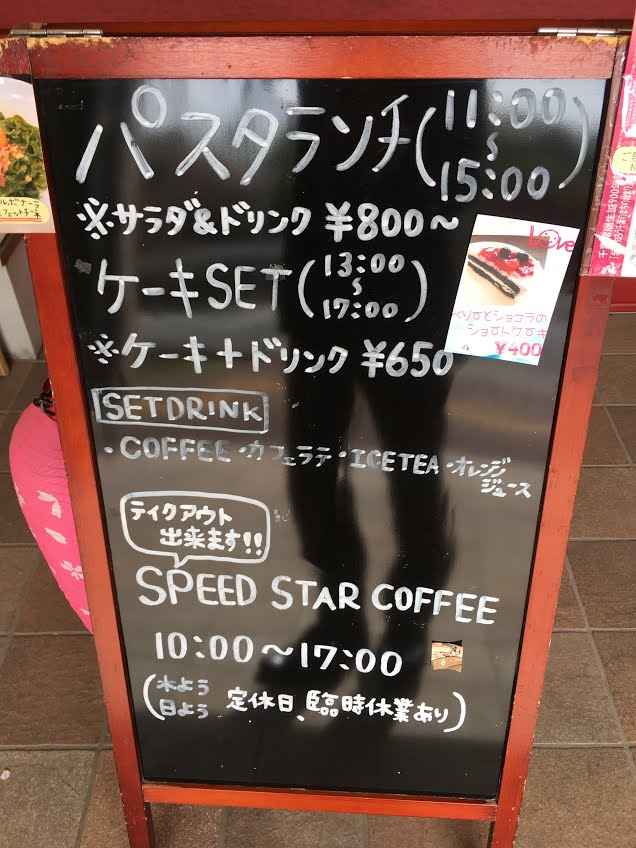 パスタランチ(11:00~15:00)
※サラダ&ドリンク ¥800~
ケーキSET(13:00~17:00)
※ケーキ+ドリンク ¥650
Love
ショートケーキ
¥400
SETDRINK
・COFFEE・カフェラテ・ICETEA・オレンジ
ジュース
テイクアウト
出来ます!!
SPEED STAR COFFEE
10:00~17:00
(木よう
日よう 定休日、臨時休業あり)